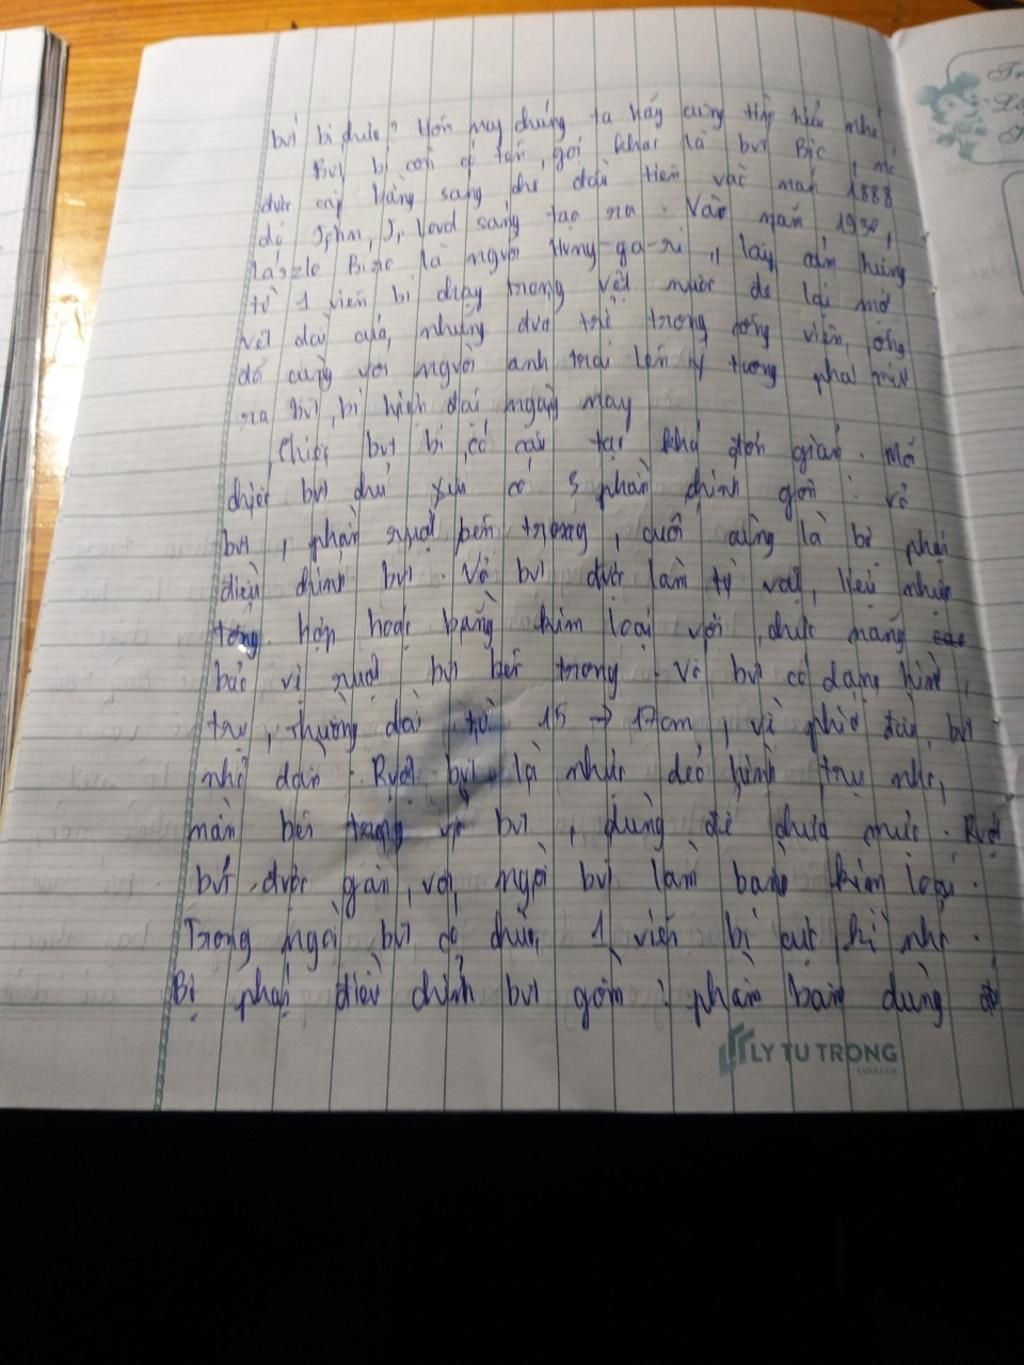 bút bi chưa? Hôm nay chúng ta hãy cùng tìm hiểu nhé
Bút bi còn có tên gọi khác là bút Bic, nó
được cấp bằng sáng chế đầu tiên vào năm 1888
do John, J, Loud sáng tạo ra. Vào năm 1930,
László Biro là người Hung-ga-ri, lấy cảm hứng
từ 1 viên bi chạy trong vết nước để lại một
vết dài của những đứa trẻ trong công viên, ông
đã cùng với người anh trai lên ý tưởng phát
ra bút bi hiện đại ngày nay
Chiếc bút bi có cấu tạo khá đơn giản. Mỗi
chiếc bút chủ yếu có 3 phần chính gồm: vỏ
bút, phần ruột bên trong, cuối cùng là bộ phận
điều chỉnh bút. Vỏ bút được làm từ vật liệu nhựa
tổng hợp hoặc bằng kim loại với chức năng
bảo vệ ruột bút bên trong. Vỏ bút có dạng hình
trụ, thường dài từ 15 → 17cm, về phía đầu bút
nhỏ dần. Ruột bút là nhựa dẻo hình trụ nhỏ,
nằm bên trong vỏ bút, dùng để chứa mực. Ruột
bút được gắn với ngòi bút làm bằng kim loại.
Trong ngòi bút có chứa 1 viên bi cực kì nhỏ.
Bộ phận điều chỉnh bút gồm: phần bấm dùng để
LY TU TRONG
Tr
Lớ